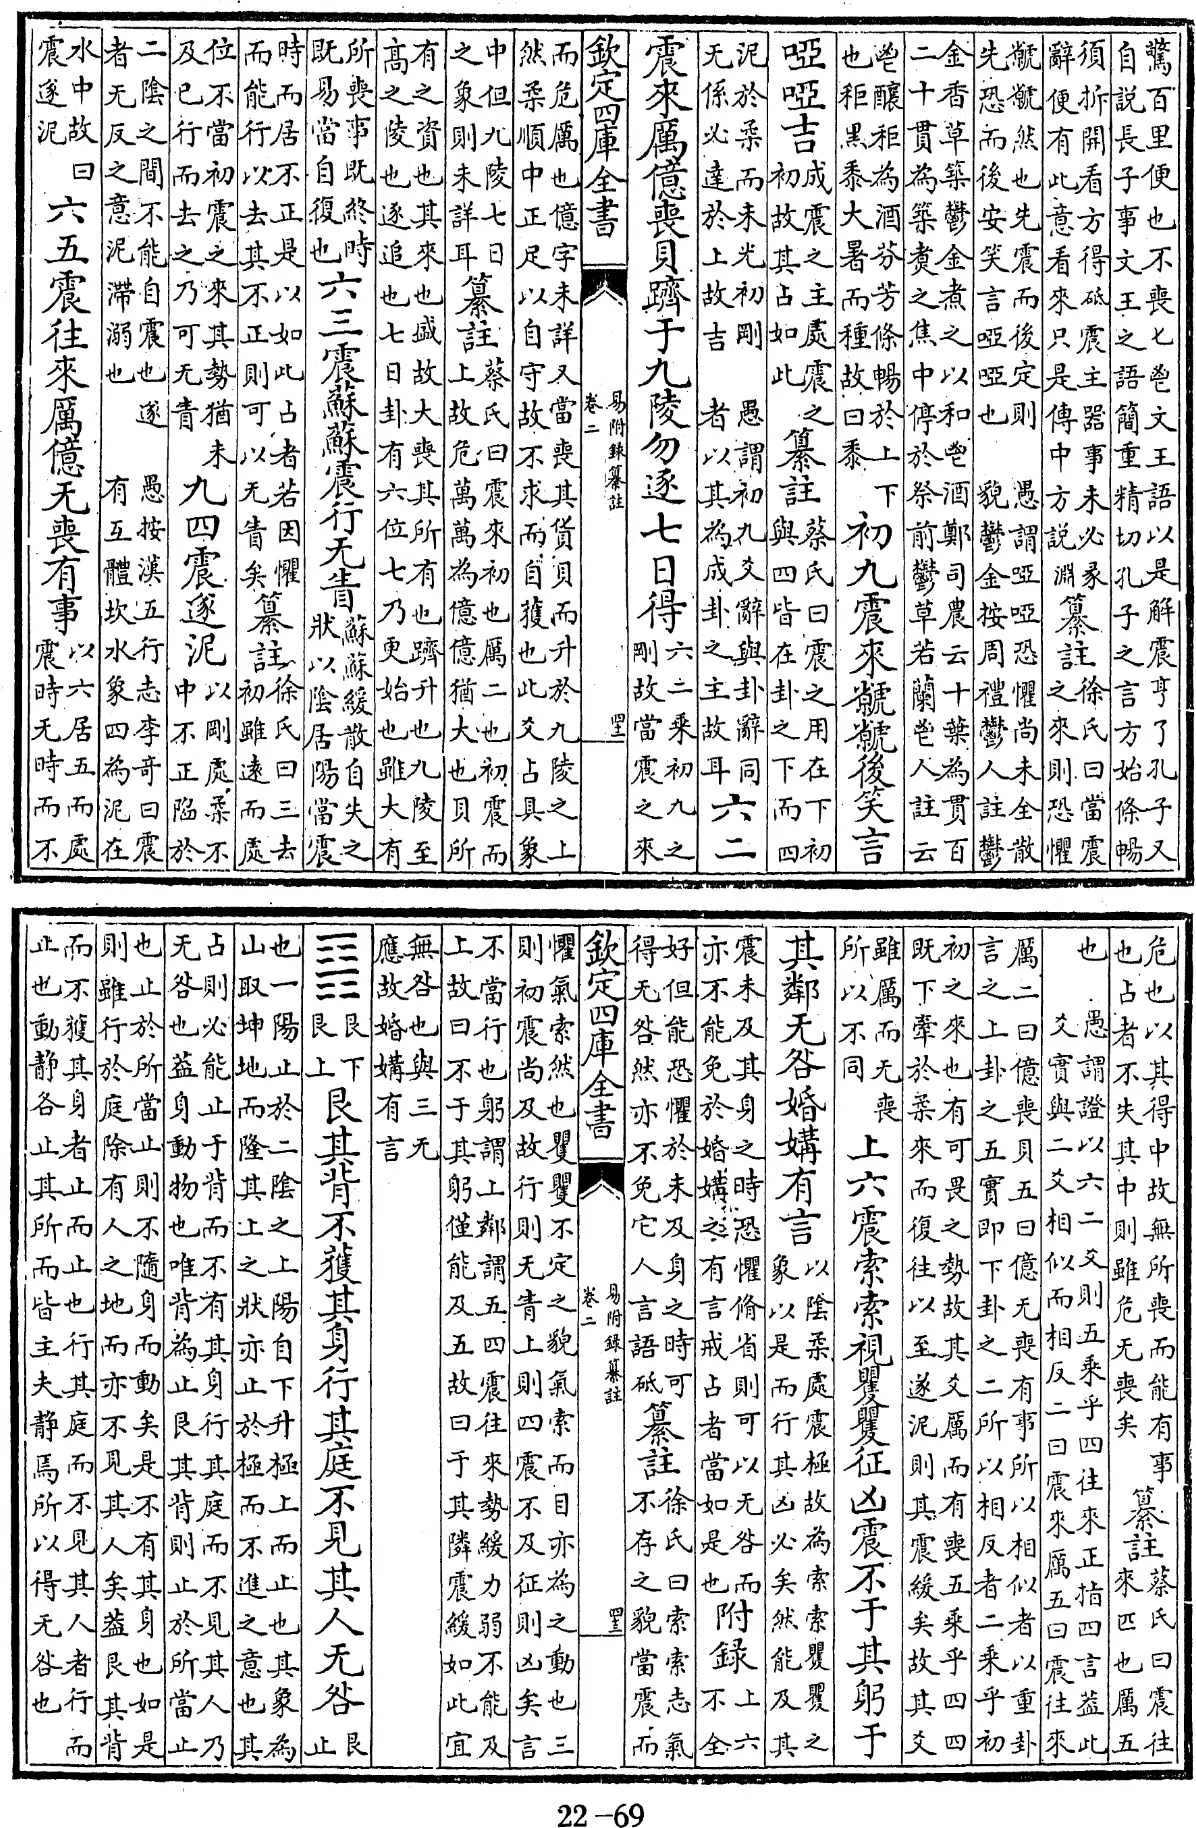 驚百里便也不喪匕鬯文王語以是解震亨了孔子又
自説長子事文王之語簡重精切孔子之言方始條暢
須拆開看方得砥震主器事未必彖
辭便有此意看來只是傳中方説淵
纂註
徐氏曰當震
之來則恐懼
虩虩然也先震而後定則
先恐而後安笑言啞啞也
愚謂啞啞恐懼尚未全散
貌鬱金按周禮鬱人註鬱
金香草築鬱金煮之以和鬯酒鄭司農云十葉為貫百
二十貫為築煑之焦中停於祭前鬱草若蘭鬯人註云
鬯釀秬為酒芬芳條暢於上下
也秬黑黍大暑而種故曰黍
初九震來虩虩後笑言
啞啞吉
成震之主處震之
初故其占如此
纂註
蔡氏曰震之用在下初
與四皆在卦之下而四
泥於柔而未光初剛
无係必達於上故吉
愚謂初九爻辭與卦辭同
者以其為成卦之主故耳
六二
震來厲億喪貝躋于九陵勿逐七日得
六二乘初九之
剛故當震之來
欽定四庫全書
易附録纂註
卷二
罒三
而危厲也億字未詳又當喪其貨貝而升於九陵之上
然柔順中正足以自守故不求而自獲也此爻占具象
中但九陵七日
之象則未詳耳
纂註
蔡氏曰震來初也厲二也初震而
上故危萬萬為億億猶大也貝所
有之資也其來也盛故大喪其所有也躋升也九陵至
高之陵也逐追也七日卦有六位七乃更始也雖大有
所喪事既終時
既易當自復也
六三震蘇蘇震行无眚
蘇蘇緩散自失之
狀以陰居陽當震
時而居不正是以如此占者若因懼
而能行以去其不正則可以无眚矣
纂註
徐氏曰三去
初雖遠而處
位不當初震之來其勢猶未
及已行而去之乃可无眚
九四震遂泥
以剛處柔不
中不正陷於
二陰之間不能自震也遂
者无反之意泥滯溺也
愚按漢五行志李奇曰震
有互體坎水象四為泥在
水中故曰
震遂泥
六五震往來厲億无喪有事
以六居五而處
震時无時而不
危也以其得中故無所喪而能有事
也占者不失其中則雖危无喪矣
纂註
蔡氏曰震往
來匹也厲五
也
愚謂證以六二爻則五乘乎四往來正指四言葢此
爻實與二爻相似而相反二曰震來厲五曰震往來
厲二曰億喪貝五曰億无喪有事所以相似者以重卦
言之上卦之五實即下卦之二所以相反者二乘乎初
初之來也有可畏之勢故其爻厲而有喪五乘乎四四
既下牽於柔來而復往以至遂泥則其震緩矣故其爻
雖厲而无喪
所以不同
上六震索索視矍矍征凶震不于其躬于
其鄰无咎婚媾有言
以陰柔處震極故為索索矍矍之
象以是而行其凶必矣然能及其
震未及其身之時恐懼脩省則可以无咎而
亦不能免於婚媾之有言戒占者當如是也
附錄
上六
不全
好但能恐懼於未及身之時可
得无咎然亦不免它人言語砥
纂註
徐氏曰索索志氣
不存之貌當震而
欽定四庫全書
易附録纂註
卷二
罒三
懼氣索然也矍矍不定之貌氣索而目亦為之動也三
則初震尚及故行則无眚上則四震不及征則凶矣言
不當行也躬謂上鄰謂五四震往來勢緩力弱不能及
上故曰不于其躬僅能及五故曰于其隣震緩如此宜
無咎也與三无
應故婚媾有言
艮下
艮上
艮其背不獲其身行其庭不見其人无咎
艮
止
也一陽止於二陰之上陽自下升極上而止也其象為
山取坤地而隆其上之狀亦止於極而不進之意也其
占則必能止于背而不有其身行其庭而不見其人乃
无咎也葢身動物也唯背為止艮其背則止於所當止
也止於所當止則不隨身而動矣是不有其身也如是
則雖行於庭除有人之地而亦不見其人矣葢艮其背
而不獲其身者止而止也行其庭而不見其人者行而
止也動靜各止其所而皆主夫靜焉所以得无咎也
22-69